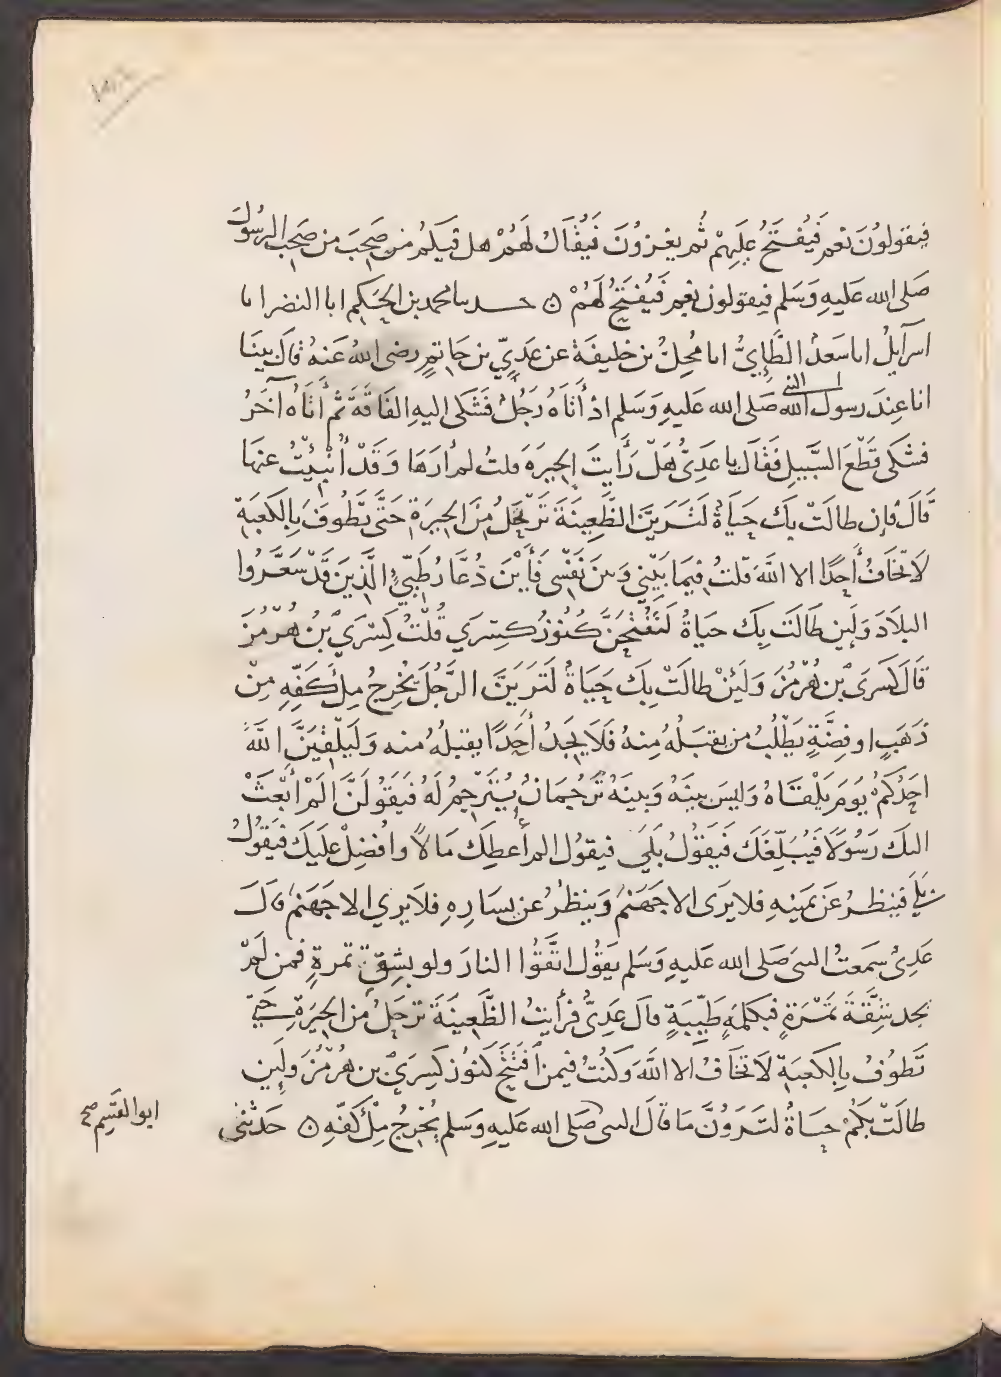 فيقولون نعم فَيُفْتَحُ عليهِمْ ثُم يغزُونَ فَيُقَالُ لَهُمْ هل فيكم من صَحِبَ من صَحِبَ الرسُولَ
صَلى الله عَليهِ وَسَلم فيقولون نعم فَيُفْتَحُ لَهُمْ ۞ حدثنا محمد بن الحَكم انا النضر انا
اسرآيلُ انا سَعدُ الطَّايِيُّ انا مُحِلُّ بن خليفَةَ عن عَدِيّ بن حَاتِمٍ رضى اللهُ عَنهُ قال بينَا
انا عِندَ رسول الله صَلى الله عليهِ وَسَلم اذْ أَتَاهُ رَجُلٌ فَشَكى اليهِ الفَاقَةَ ثم أتَاهُ آخَرُ
النبي
فشَكى قَطْعَ السَّبِيلِ فَقَال يا عَدِىُّ هَلْ رَأَيتَ الحِيرَةَ قلتُ لم أرَهَا وَقَدْ أُنْبِئْتُ عنهَا
قَالَ فإن طالَتْ بِكَ حَيَاةٌ لَتَرَيَنَّ الظَّعِينَةَ تَرْتَحِلُ مِنَ الحِيرَةِ حَتَّى تَطُوفَ بِالكَعبَةِ
لا تَخَافُ أَحَدًا الا اللهَ قلتُ فِيمَا بَيْنِي وَبين نَفْسِى فَأَيْنَ دُعَّارُ طَيِّيٍ الَّذِينَ قَدْ سَعَّرُوا
البلادَ وَلَئِن طَالَتْ بِكَ حيَاةٌ لَتُفْتَحَنَّ كُنُوزُ كِسْرَى قُلْتُ كِسْرَى بْنُ هُرْمُزَ
قَالَ كِسرَى بْن هُرْمُزَ وَلَئِنْ طَالَتْ بِكَ حَيَاةٌ لَتَرَيَنَّ الرَّجُلَ يُخْرِجُ مِلْ كَفِّهِ مِنْ
ذَهَبٍ او فِضَّةٍ يَطْلُبُ من يقبَلُهُ مِنهُ فَلا يَجِدُ أَحَدًا يقبلُهُ منه وَلَيَلْقَيَنَّ اللهَ
احَدُكُمْ يَومَ يَلْقَاهُ وَليسَ بينَهُ وَبينَهُ تُرْجُمَانٌ يُتَرْجِمُ لَهُ فَيَقُولَنَّ الَمْ أَبْعَثْ
اليكَ رَسُولًا فَيُبَلِّغَكَ فَيَقُولُ بَلَى فيقولُ الم أُعطِكَ مَالًا وأُفضِلْ عليكَ فيقُولُ
بَلَى فينظرُ عَن يَمينِهِ فلا يرَى الا جَهَنمَ وَينظُرُ عن يسَارِهِ فلا يرى الا جَهَنمَ قالَ
عَدِىٌ سمعتُ النبى صَلى الله عَليهِ وَسَلم يَقُولُ اتَّقُوا النارَ ولو بِشِقَّةِ تمرةٍ فمن لَمْ
يجد شِقَّةَ تَمْرَةٍ فبكلمَةٍ طَيِّبَةٍ قالَ عَدِىُّ فرأيتُ الظَّعِينَةَ تَرْتَحِلُ من الحِيرَةِ حَتى
تَطوُفُ بِالكَعبَةِ لا تخَافُ الا اللهَ وَكُنتُ فيمن افْتَتَحَ كُنُوزَ كِسْرَى بن هُرْمُزَ وَلَئِن
طالَتْ بِكُمْ حيَاةٌ لتَرَوُنَّ مَا قالَ النبى صَلى الله عَليهِ وَسَلم يُخْرِجُ مِلْ كَفِّهِ ۞ حَدثنى
ابو القسم صح